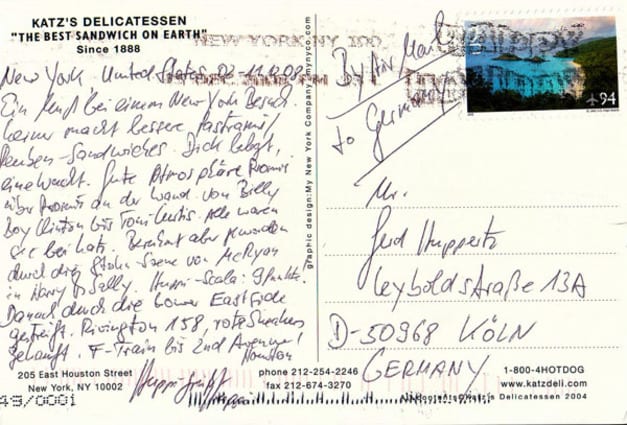 KATZ'S DELICATESSEN
"THE BEST SANDWICH ON EARTH"
Since 1888
New York United States
Ein Muß bei einem New York Besuch.
keiner macht bessere Pastrami/
Reuben-Sandwiches. Dick belegt,
eine Wucht. Gute Atmosphäre Promis
über Promis an der Wand. Von Billy
Boy Clinton bis Toni Curtis. Alle waren
sie bei Katz. Berühmt aber geworden
durch die Stöhn-Szene von Mc Ryan
in Harry & Sally. Huppi-Scala: 9 Punkte.
Danach durch die Lower East Side
gestreift. Rivington 158, rote Sneakers
gekauft. F-Train bis 2nd Avenue/
Houston
205 East Houston Street
New York, NY 10002
phone 212-254-2246
fax 212-674-3270
49/0001
graphic design: My New York Company
NEW YORK NY 100
94
By Air Mail
to Germany
Mr.
Gerd Huppertz
Leyboldstraße 13A
D-50968 KÖLN
GERMANY
1-800-4HOTDOG
www.katzdeli.com
Delicatessen 2004